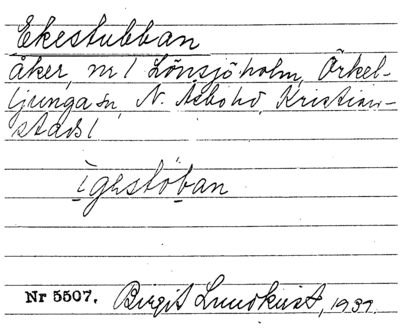 Ekestubban
åker, m / Lönsjöholm, Örkel-
ljunga sn, N. Åsbohd, Kristian-
stads l
ìgestöban
Nr 5507. Birgit Lundkvist, 1931.